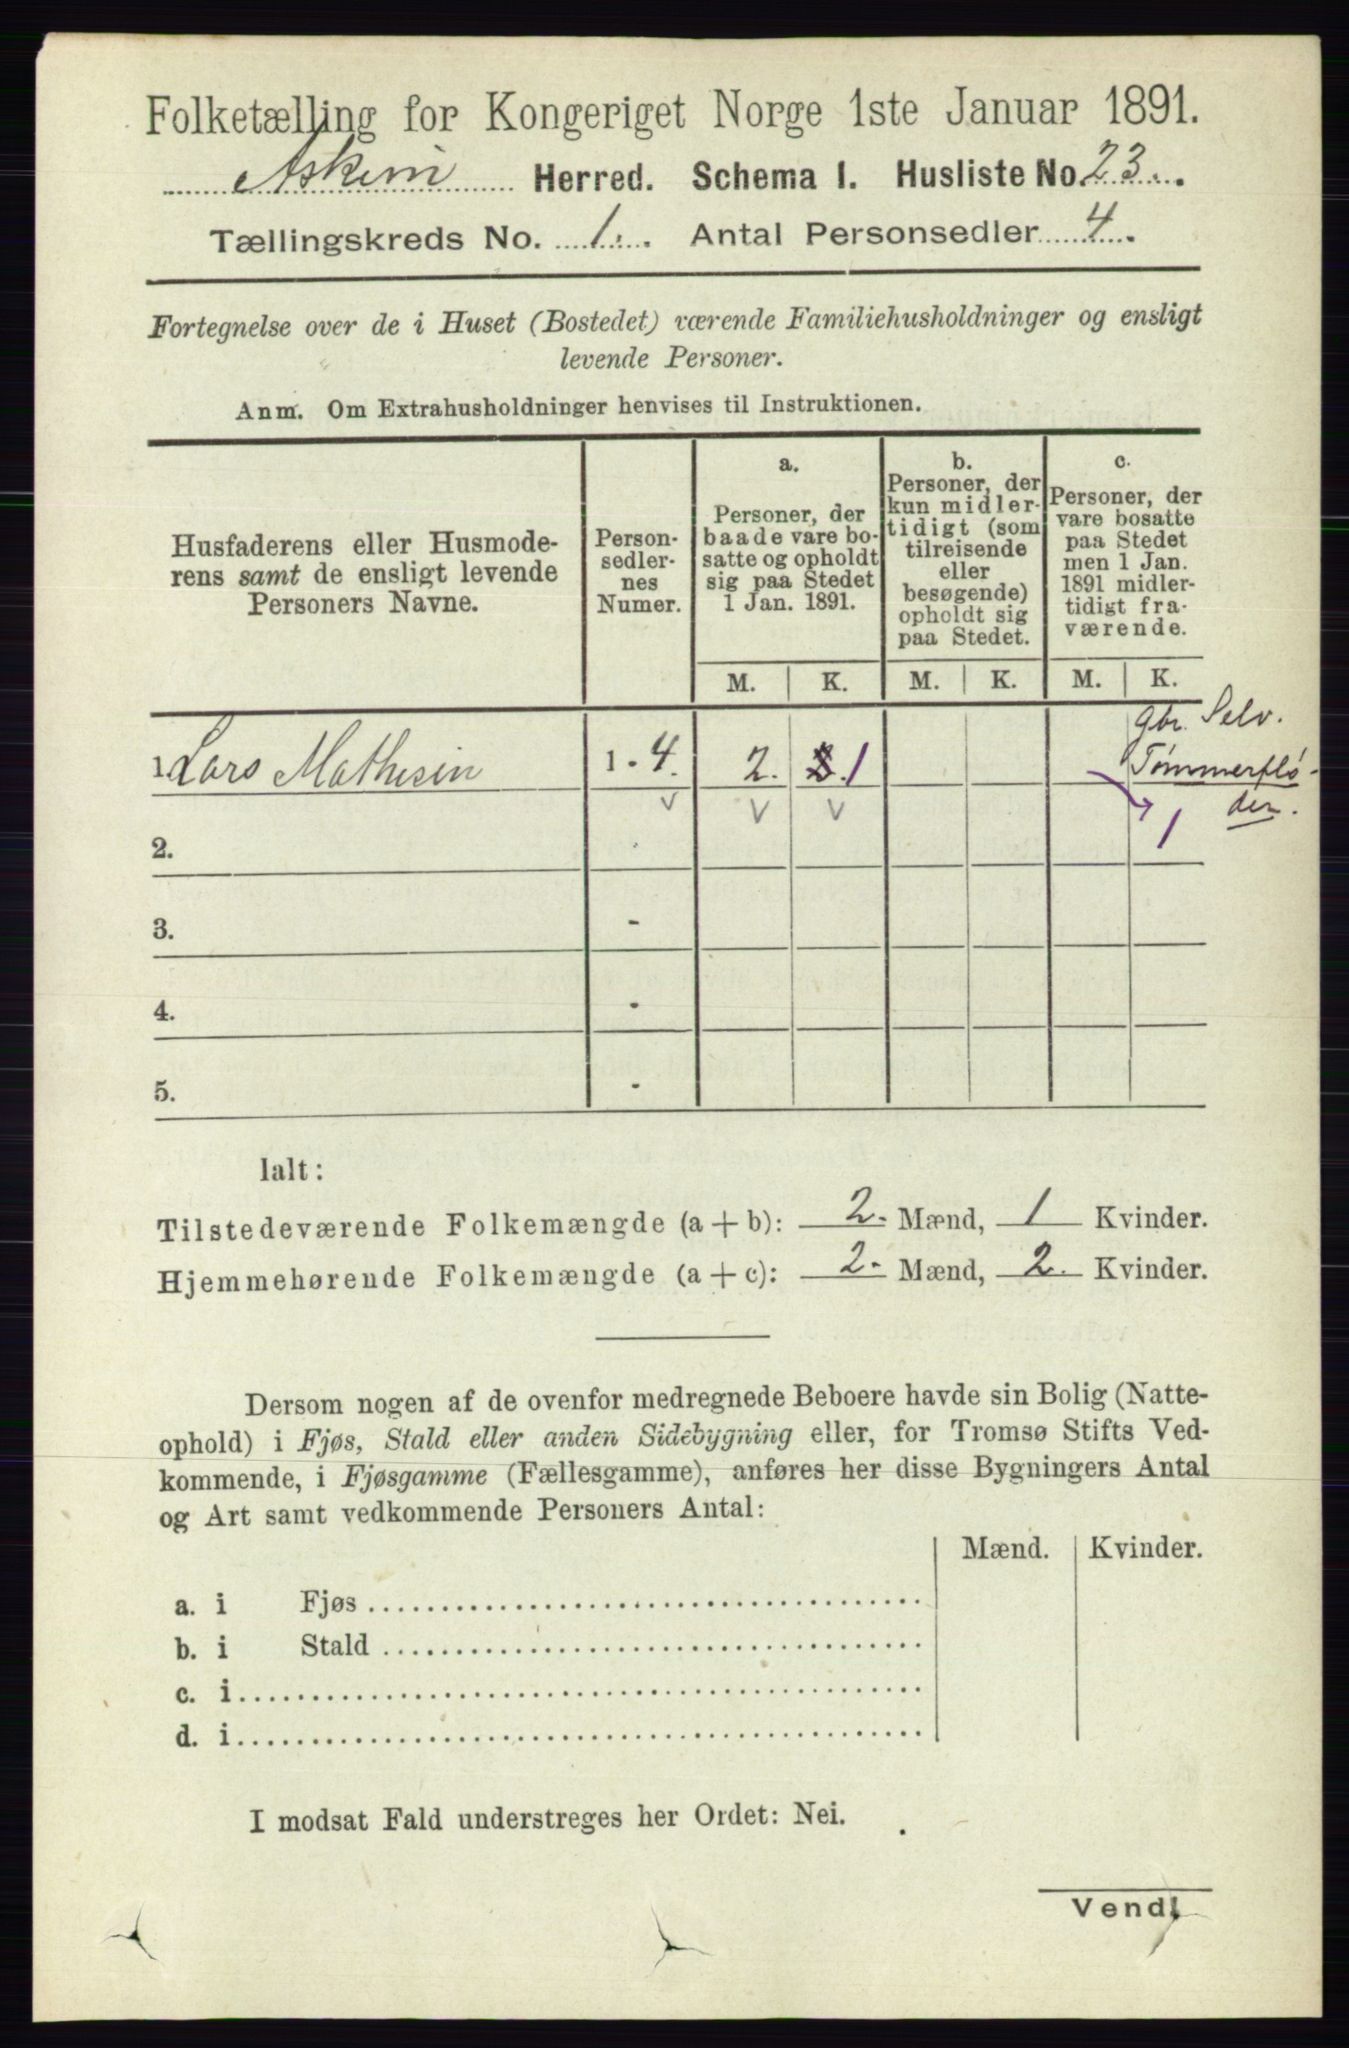 Folketælling for Kongeriget Norge 1ste Januar 1891.
Askim Herred. Schema I. Husliste No. 23.
Tællingskreds No. 1. Antal Personsedler 4.
Fortegnelse over de i Huset (Bostedet) værende Familiehusholdninger og ensligt
levende Personer.
Anm. Om Extrahusholdninger henvises til Instruktionen.
Husfaderens eller Husmode-
rens samt de ensligt levende
Personers Navne.
Person-
sedler-
nes
Numer.
a.
Personer, der
baade vare bo-
satte og opholdt
sig paa Stedet
1 Jan. 1891.
b.
Personer, der
kun midler-
tidigt (som
tilreisende
eller
besøgende)
opholdt sig
paa Stedet.
c.
Personer, der
vare bosatte
paa Stedet
men 1 Jan.
1891 midler-
tidigt fra-
værende.
M. K. M. K. M. K.
gbr. Selv.
1. Lars Mathesen 1 - 4. 2. 2. 1 Tømmerflø-
der.
v v v
1
2.
3. -
4. -
5. -
Ialt:
Tilstedeværende Folkemængde (a + b): 2. Mænd, 1 Kvinder.
Hjemmehørende Folkemængde (a + c): 2. Mænd, 2. Kvinder.
Dersom nogen af de ovenfor medregnede Beboere havde sin Bolig (Natte-
ophold) i Fjøs, Stald eller anden Sidebygning eller, for Tromsø Stifts Ved-
kommende, i Fjøsgamme (Fællesgamme), anføres her disse Bygningers Antal
og Art samt vedkommende Personers Antal:
Mænd. Kvinder.
a. i Fjøs
b. i Stald
c. i
d. i
I modsat Fald understreges her Ordet: Nei.
Vend!